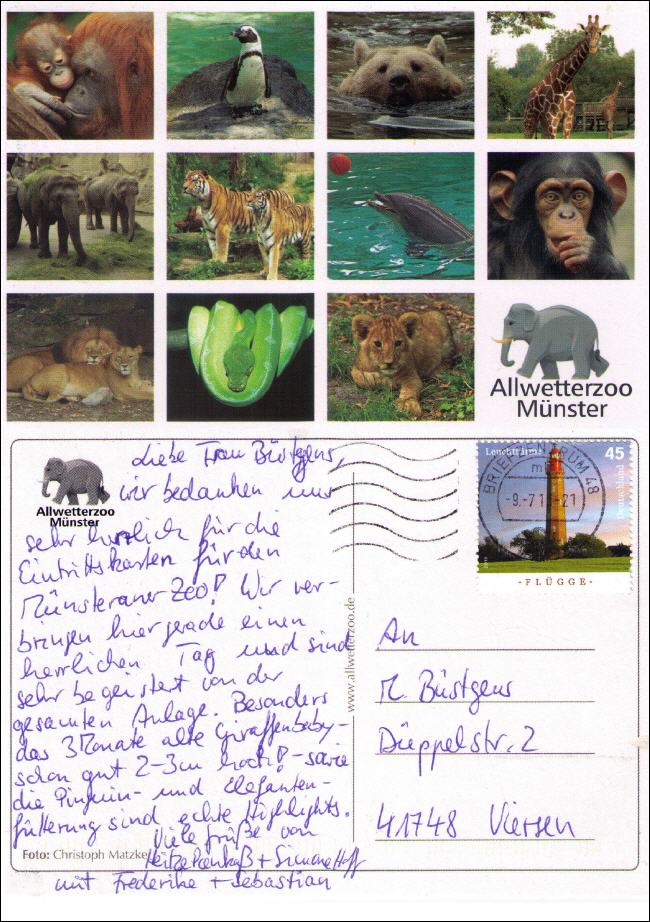 Allwetterzoo
Münster
Allwetterzoo
Münster
Liebe Frau Büstgens,
wir bedanken uns
sehr herzlich für die
Eintrittskarten für den
Münsteraner Zoo! Wir ver-
bringen hier gerade einen
herrlichen Tag und sind
sehr begeistert von der
gesamten Anlage. Besonders
das 3 Monate alte Giraffenbaby -
schon gut 2-3m hoch! - sowie
die Pinguin- und Elefanten-
fütterung sind echte Highlights.
Viele Grüße von
+ Simone Hoff
mit Frederike + Sebastian
Foto: Christoph Matzke
www.allwetterzoo.de
BRIEFZENTRUM 48
-9.-7.1 -21
Leuchttürme
45
Deutschland
-FLÜGGE-
An
M. Büstgens
Düppelstr. 2
41748 Viersen